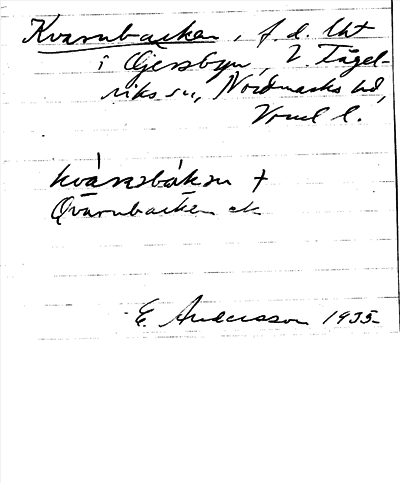 Kvarnbacken, f. d. lht
i Gjersbyn, V. Fågel-
viks sn, Nordmarks hd,
Vrml l.
kvarnbakən +
Qvarnbacken ek
E. Andersson 1935